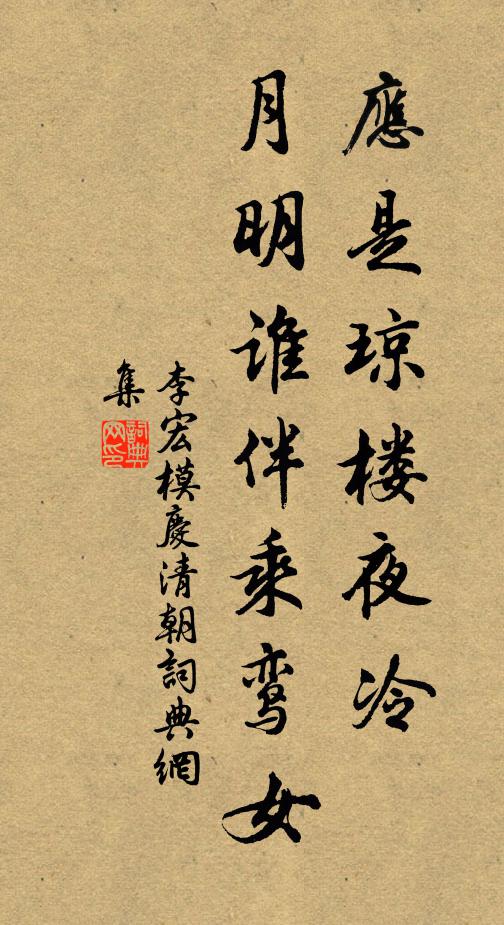 應是琼楼夜冷
月明誰伴乘鸾女
李宏模慶清朝詞典網
集
詞典
网印